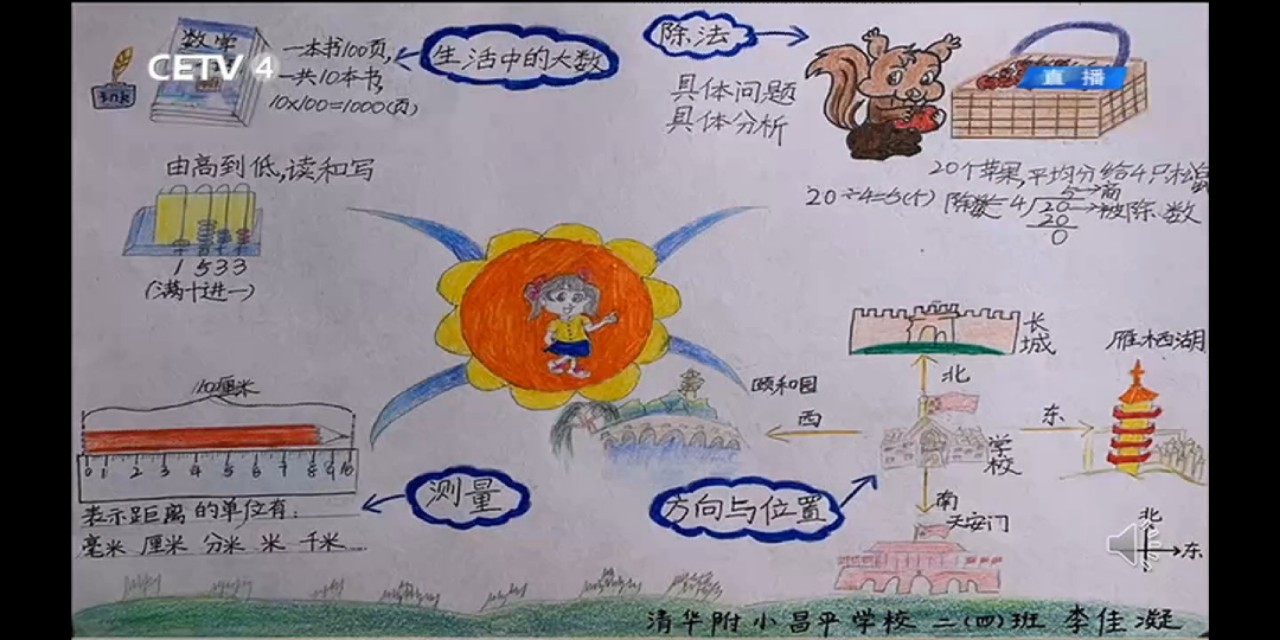 数学
CETV 4
一本书100页,
一共10本书,
10×100=1000(页)
生活中的大数
Ink
由高到低,读和写
1 5 3 3
(满十进一)
除法
具体问题
具体分析
直播
20个苹果,平均分给4只松鼠
20÷4=5(个)
5→商
除数←4 20→被除数
20
0
10厘米
0 1 2 3 4 5 6 7 8 9 10
测量
表示距离的单位有:
毫米 厘米 分米 米 千米……
长城
雁栖湖
颐和园
北
西
东
学校
南
天安门
方向与位置
北
东
清华附小昌平学校 二(四)班 李佳凝